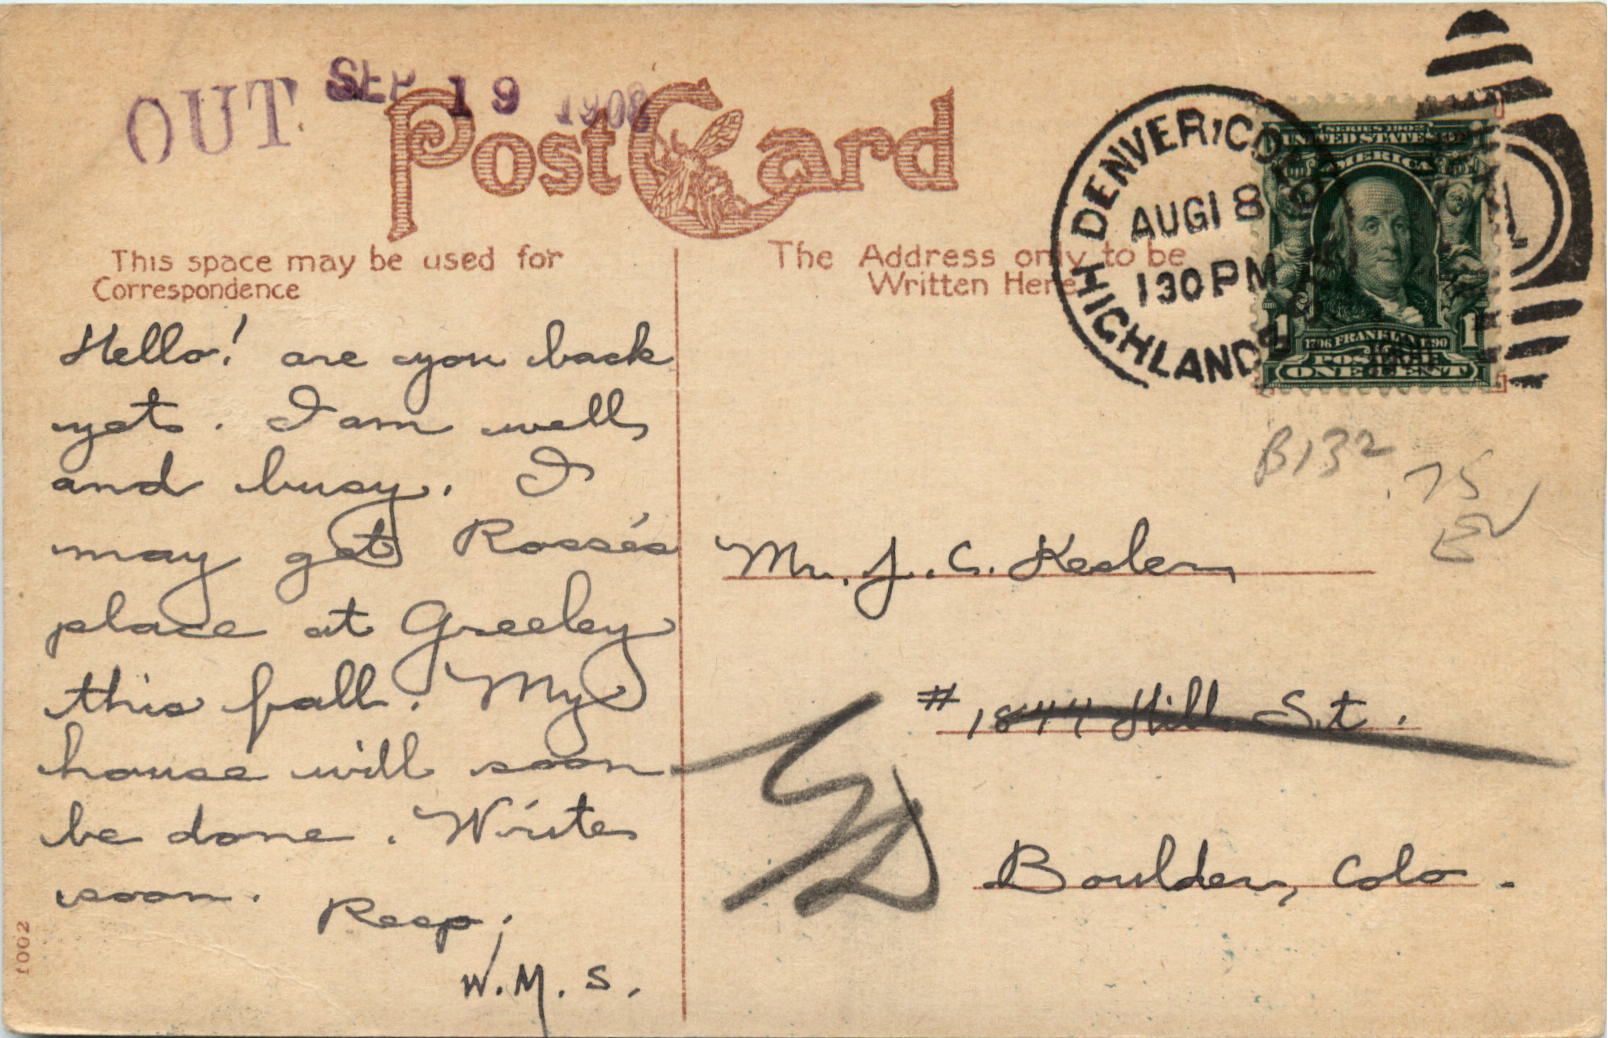 OUT SEP 19 1908
Post Card
This space may be used for
Correspondence
The Address only to be
Written Here
DENVER, COLO.
AUG 18
130 PM
HIGHLANDS
SERIES 1902
UNITED STATES OF
AMERICA
1706 FRANKLIN 1790
1 1
POSTAGE
ONE CENT
Hello! are you back
yet. I am well
and busy. I
may get Rosse's
place at Greeley
this fall. My
house will soon
be done. Write
soon.
Resp.
W.M.S.
B132
.75
Mr. J. C. Kesler,
#1844 Hill St.
Boulder, Colo.
1002